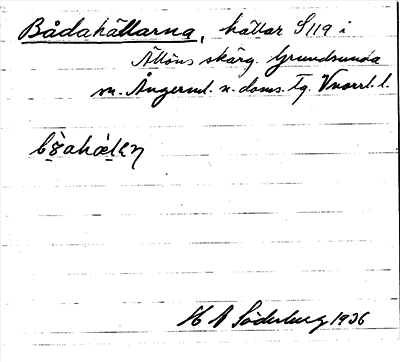 Bådahällarna, hällar S119 i
skärg. Grundsunda
sn. Ångerml. n. doms. tg. Vnorrl. l.
H A Söderberg 1936